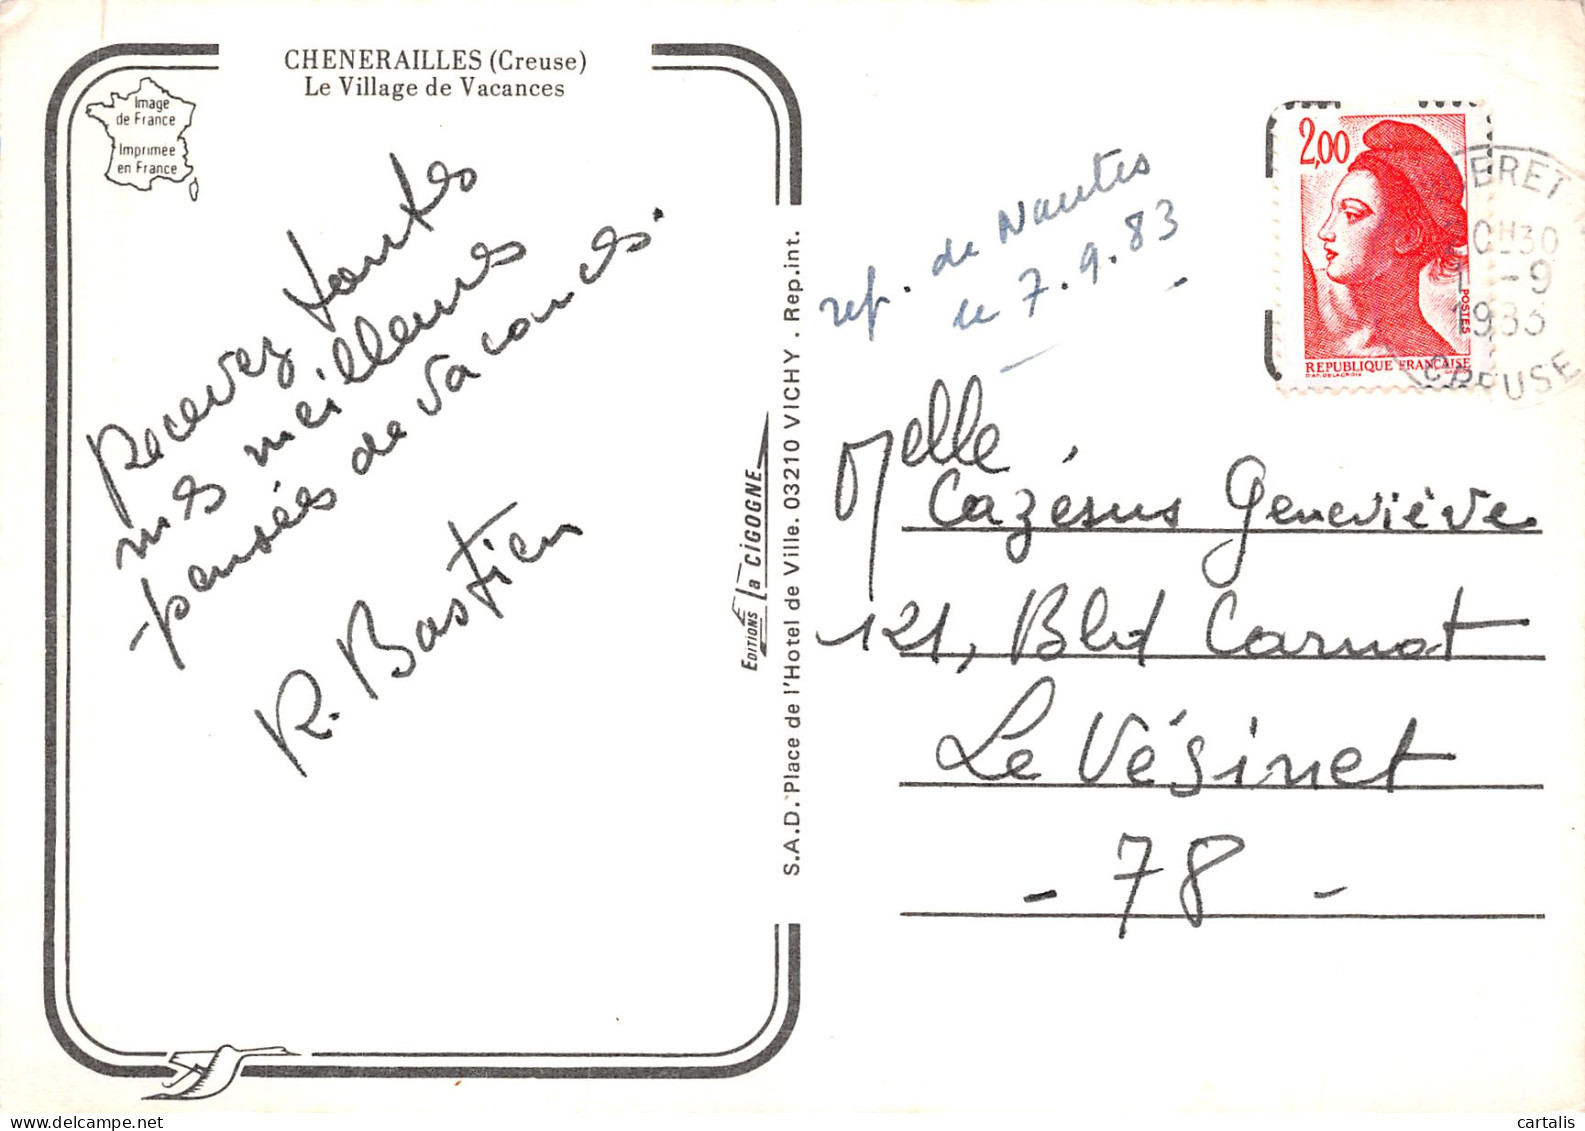 CHENERAILLES (Creuse)
Le Village de Vacances
Image
de France
Imprimée
en France
Recevez toutes
mes meilleures
pensées de vacances.
R. Bastien
EDITIONS La CIGOGNE
S.A.D. Place de l'Hotel de Ville. 03210 VICHY . Rep.int.
rep. de Nantes
le 7.9.83
2,00
POSTES
REPUBLIQUE FRANÇAISE
D'AP. DELACROIX
ERET
0H30
-9
1983
CREUSE
Melle
Cazésus Geneviève
121, Bld Carnot
Le Vésinet
- 78 -
cartalis